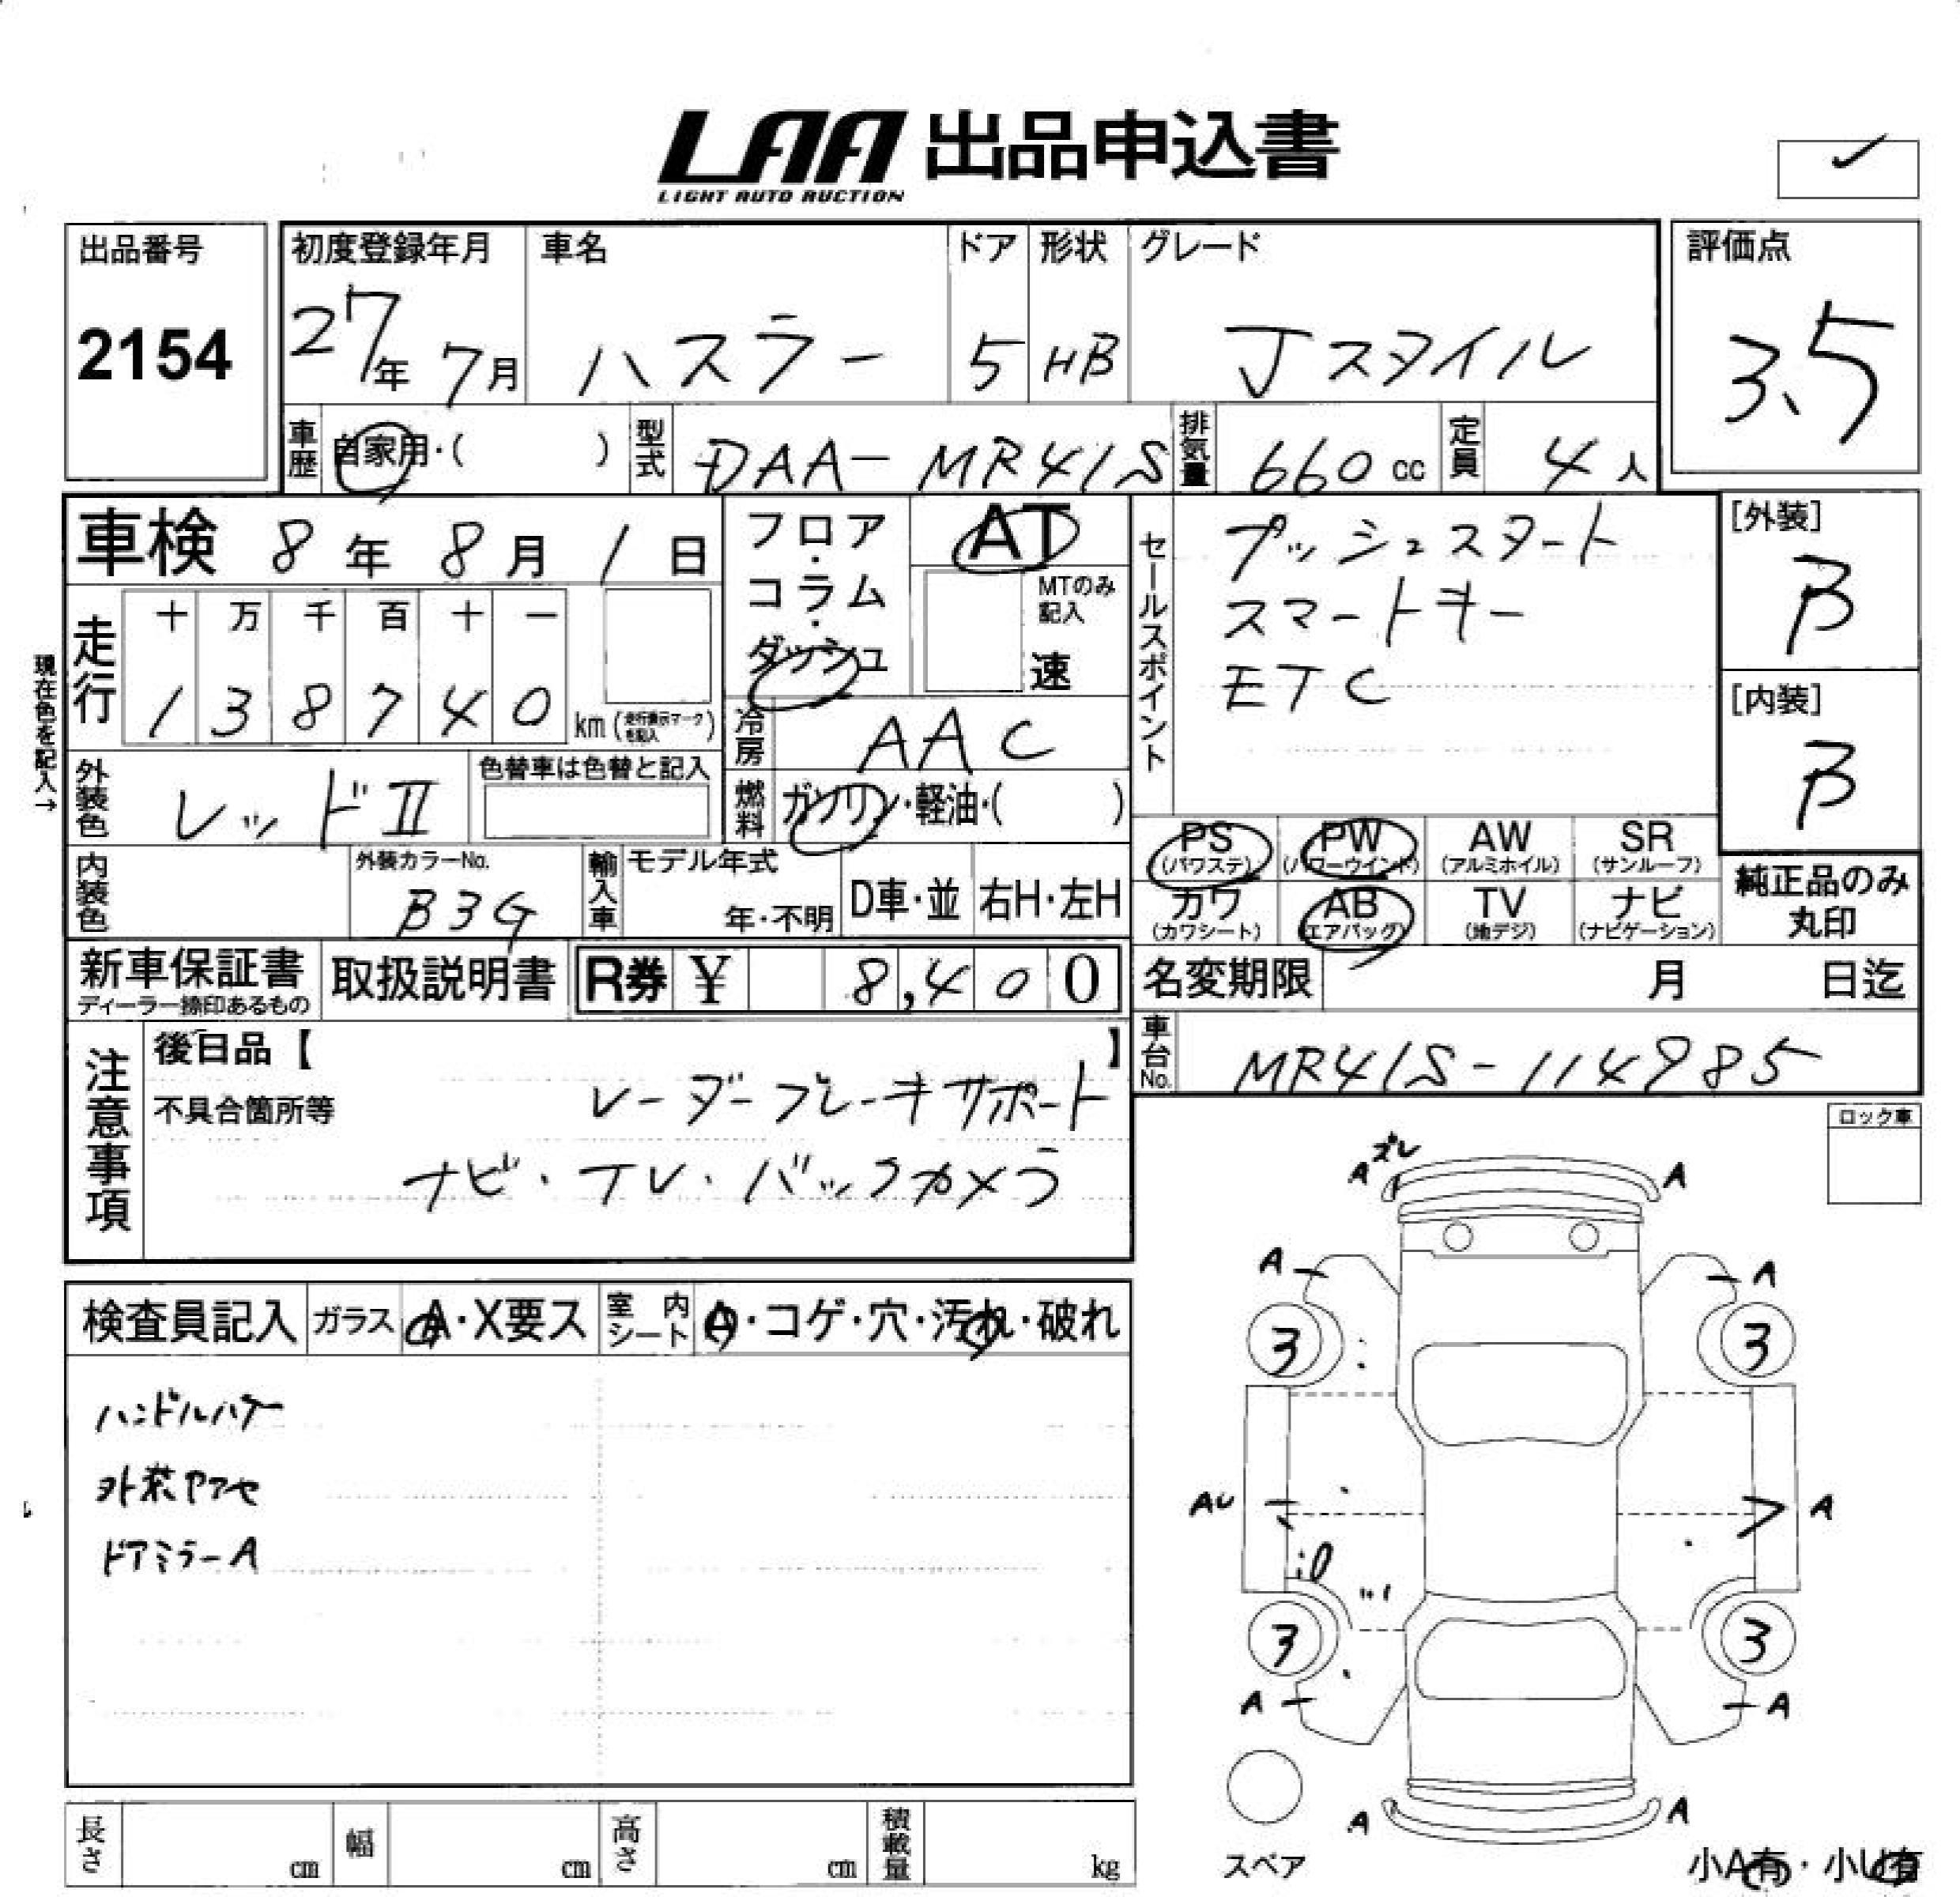 LAA 出品申込書
LIGHT AUTO AUCTION
出品番号
2154
初度登録年月
27年 7月
車名
ハスラー
ドア
5
形状
HB
グレード
Jスタイル
評価点
3.5
車歴
自家用・( )
型式
DAA-MR41S
排気量
660 cc
定員
4人
車検 8年 8月 1日
フロア・コラム・ダッシュ
AT
MTのみ記入
速
セールスポイント
プッシュスタート
スマートキー
ETC
[外装]
B
[内装]
B
現在色を記入→
走行
十 万 千 百 十 一
1 3 8 7 4 0 km (走行表示マークを記入)
冷房
AAC
外装色
レッドII
色替車は色替と記入
燃料
ガソリン・軽油・( )
PS (パワステ)
PW (パワーウインド)
AW (アルミホイル)
SR (サンルーフ)
カワ (カワシート)
AB (エアバッグ)
TV (地デジ)
ナビ (ナビゲーション)
純正品のみ丸印
内装色
外装カラーNo.
B3G
輸入車
モデル年式
年・不明
D車・並
右H・左H
新車保証書
ディーラー捺印あるもの
取扱説明書
R券 ¥ 8,400
名変期限 月 日迄
車台No.
MR41S-114985
注意事項
後日品【 】
不具合箇所等
レーダーブレーキサポート
ナビ・TV・バックカメラ
ロック車
検査員記入
ガラス
A・X要ス
室内シート
A・コゲ・穴・汚れ・破れ
ハンドルハゲ
外装ヤケヤセ
ドアミラーA
ズレ
A A
A A
3 3
AU A
3 3
A A
A A
スペア
小A有・小U有
長さ cm
幅 cm
高さ cm
積載量 kg